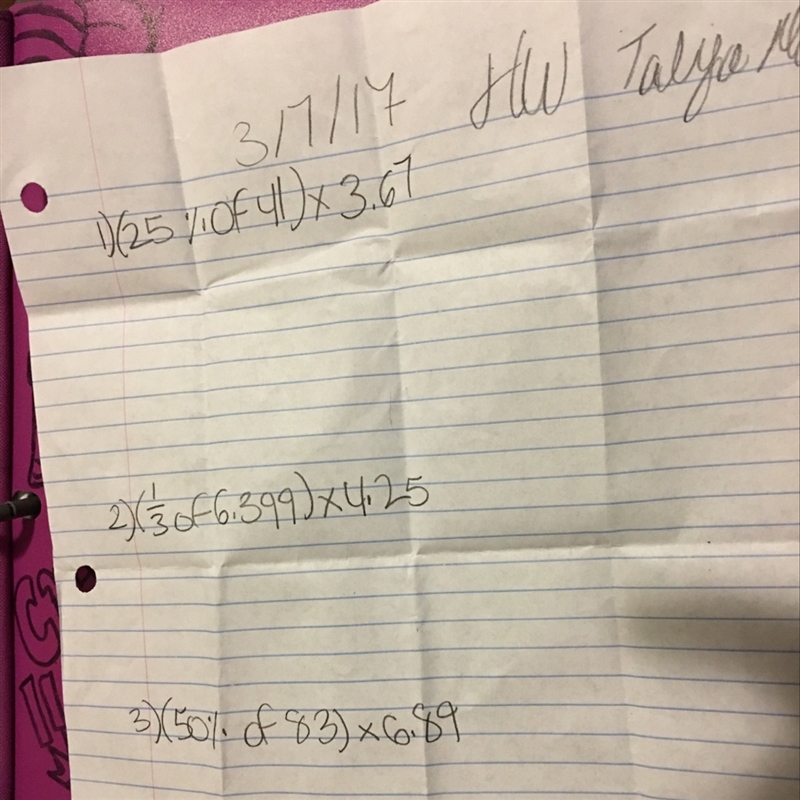 3/7/17 HW Taliya
1)(25% Of 41) x 3.67
2)(1/3 of 6.399) x 4.25
3)(50% of 83) x 6.89